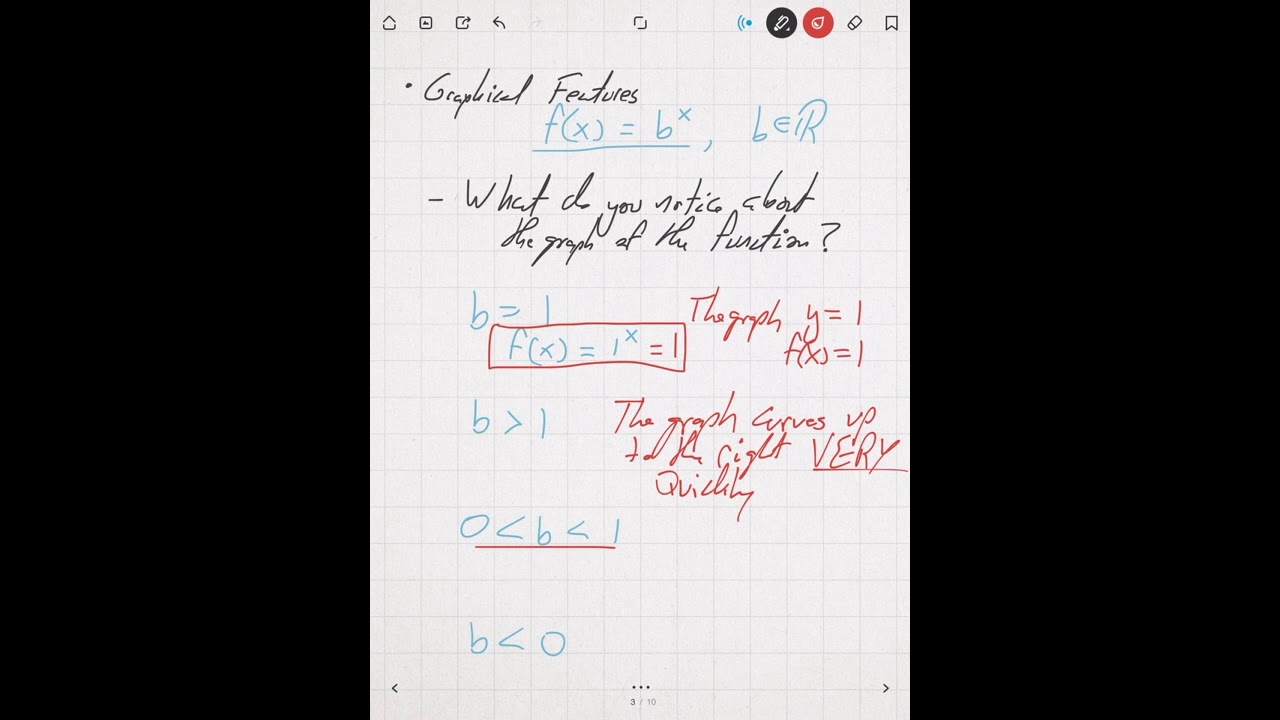 • Graphical Features
f(x) = b^x, b∈ℝ
- What do you notice about
the graph of the function?
b = 1 The graph y = 1
f(x) = 1^x = 1 f(x) = 1
b > 1 The graph curves up
to the right VERY
Quickly
0 < b < 1
b < 0
3 / 10